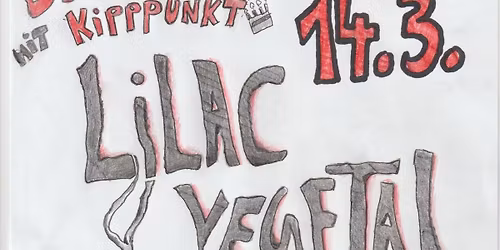 MiT KiPPPUNKT
14.3.
LiLAC
VEGETAL